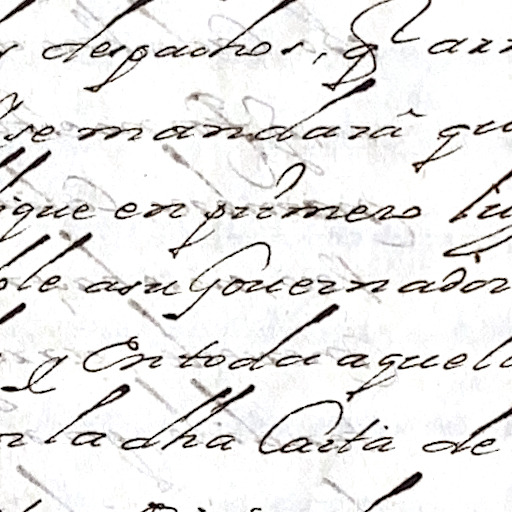 despachos, q
se mandarà qu
ique en primero lu
ble asu Gouernador
y En toda aquell
la dha Carta de